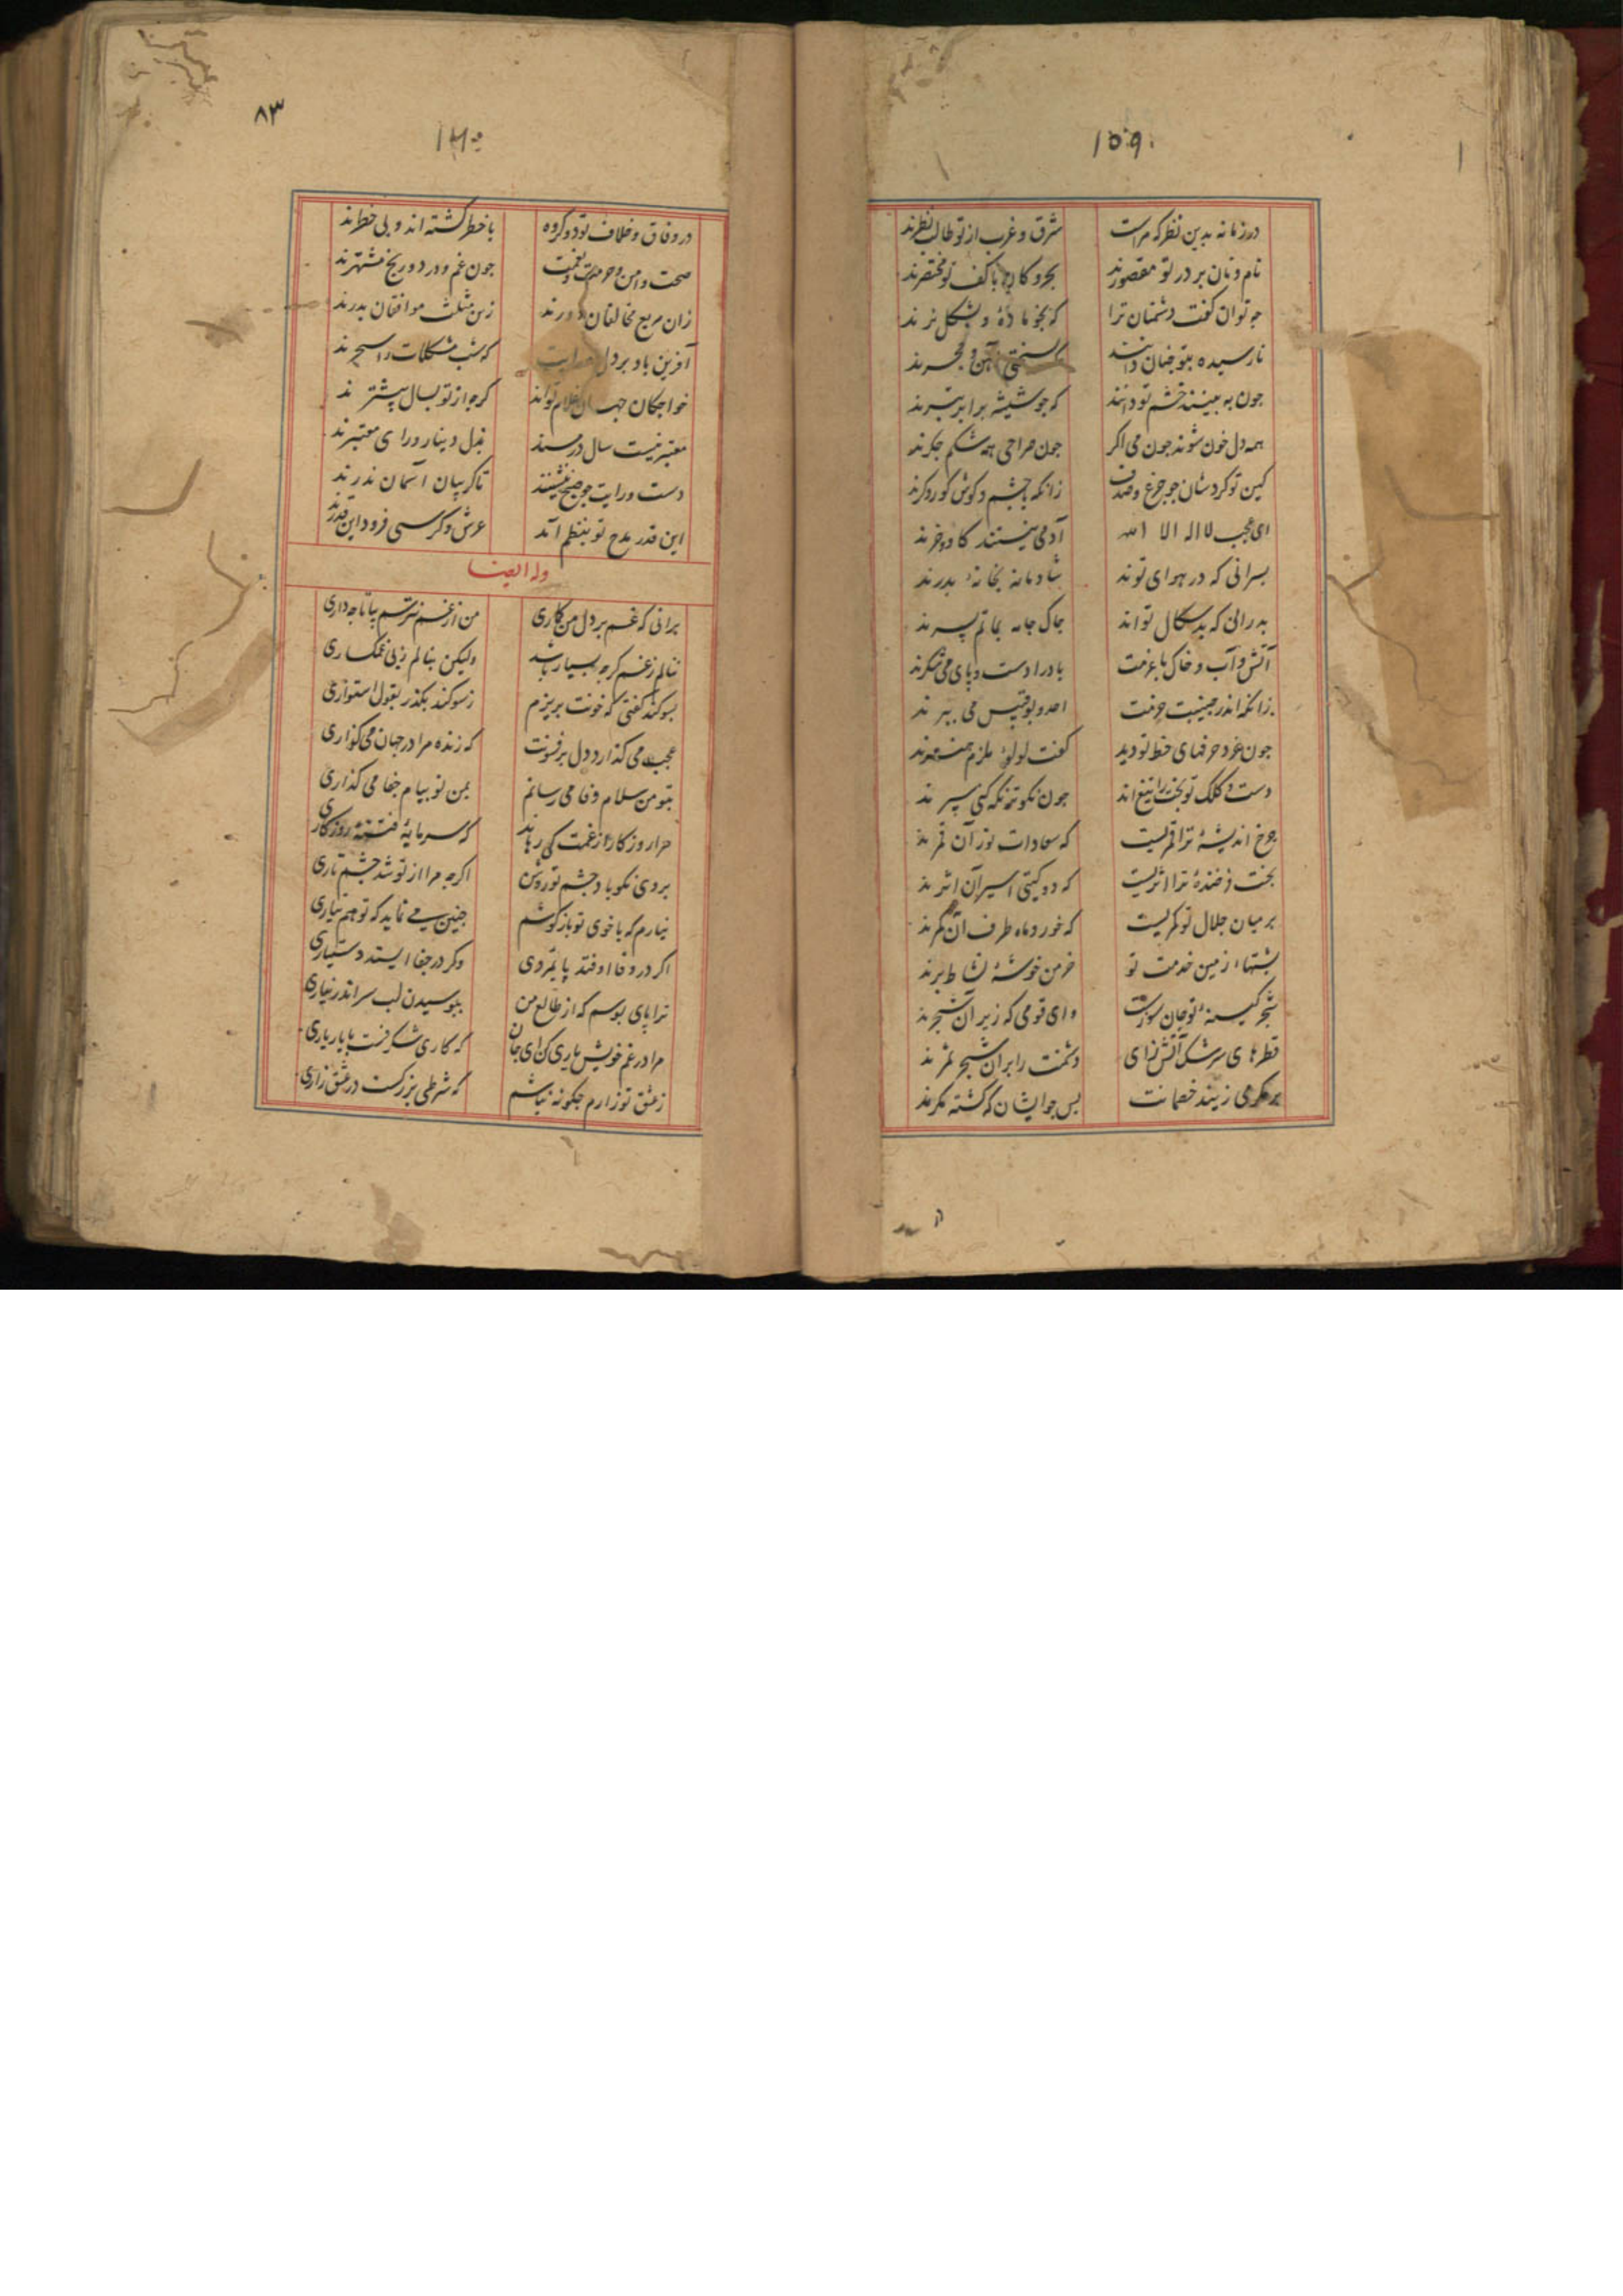 ۱۵۹
در زمانه بدین نظر که مراست شرق و غرب از تو طالب نظرند
نام و نان بر در تو مقصورند بحر و کان با کف تو مختصرند
چه توان گفت دشمنان ترا که بخو ماده و بشکل نرند
نارسیده بتو چنان دانند بسختی آهن و حجرند
چون به بینند خشم تو دانند که چو شیشه برابر تبرند
همه دل خون شوند چون می اگر چون صراحی همه شکم جگرند
کین تو کردشان چو جزع و صدف زانکه با چشم و گوش کور و کرند
ای عجب لا اله الا الله آدمی نیستند گاو و خرند
پسرانی که در هوای تو اند شادمانه بخانه پدرند
پدرانی که بدسگال تو اند چاک جامه بماتم پسرند
آتش و آب و خاک با عزمت باد را دست و پای می شکرند
زانکه اندر جنیبت حزمت احد و بوقبیس می بپرند
چون عدد حرفهای خط تو دید گفت لولو
دست و کلک تو چون نکو
چرخ اندیشه ترا قمریست که سعادات نور آن قمرند
بخت فرخنده ترا اثریست که دو گیتی اسیر آن اثرند
بر میان جلال تو کمریست که خور و ماه طرف آن کمرند
پشتها از زمین خدمت تو خرمن خوشه نشاط برند
شجر کینه تو جان سوزست وای قومی که زیر آن شجرند
قطره های سرشک آتش زای دشمنت را بر آن شجر ثمرند
زیند خصمانت پس چو ایشان که گشته
۸۳
۱۶۰
در وفاق و خلاف تو دو گروه با خطر گشته اند و بی خطرند
صحت و امن و حرمت و نعمت چون غم و درد و رنج مشتهرند
زان مربع مخالفان زین مثلث موافقان بدرند
آفرین باد بر دل که شب مشکلات را سحرند
خواجگان جهان غلام تواند گرچه از تو بسال پیشترند
معتبر نیست سال در سند بذل و دینار و رای معتبرند
دست و رایت چو صبح ننشینند تا گریبان آسمان ندرند
این قدر مدح تو بنظم آمد عرش و کرسی فرود این قدرند
وله ایضا
برانی که غم بر دل من گماری من از غم نترسم بیا تا چه داری
ننالم ز غم گرچه بسیار باشد ولیکن بنالم ز بی غمگساری
بسوگند گفتی که خونت بریزم ز سوگند بگذر بقول استواری
عجب می گذارد دل پر فسونت که زنده مرا در جهان می گذاری
بتو من سلام وفا می رسانم بمن تو پیام جفا می گذاری
مرا روزگار از غمت کی رهاند که سرمایه فتنه روزگاری
بروی نکو باد چشم تو روشن اگرچه مرا از تو شد چشم تاری
نیارم که با خوی تو باز کوشم چنین می نماید که تو هم نیاری
اگر در وفا اوفتد پایمردی وگر در جفا ایستد دستیاری
ترا پای بوسم که از طالع من ببوسیدن لب سر اندر نیاری
مرا در غم خویش یاری کن ای جان که کاری شگرفست با یار یاری
ز عشق تو زارم چگونه نباشم که شرطی بزرگست در عشق زاری